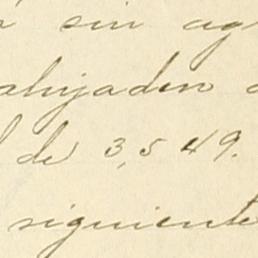 sin ag
ahijaden
de 3,549.
siguiente